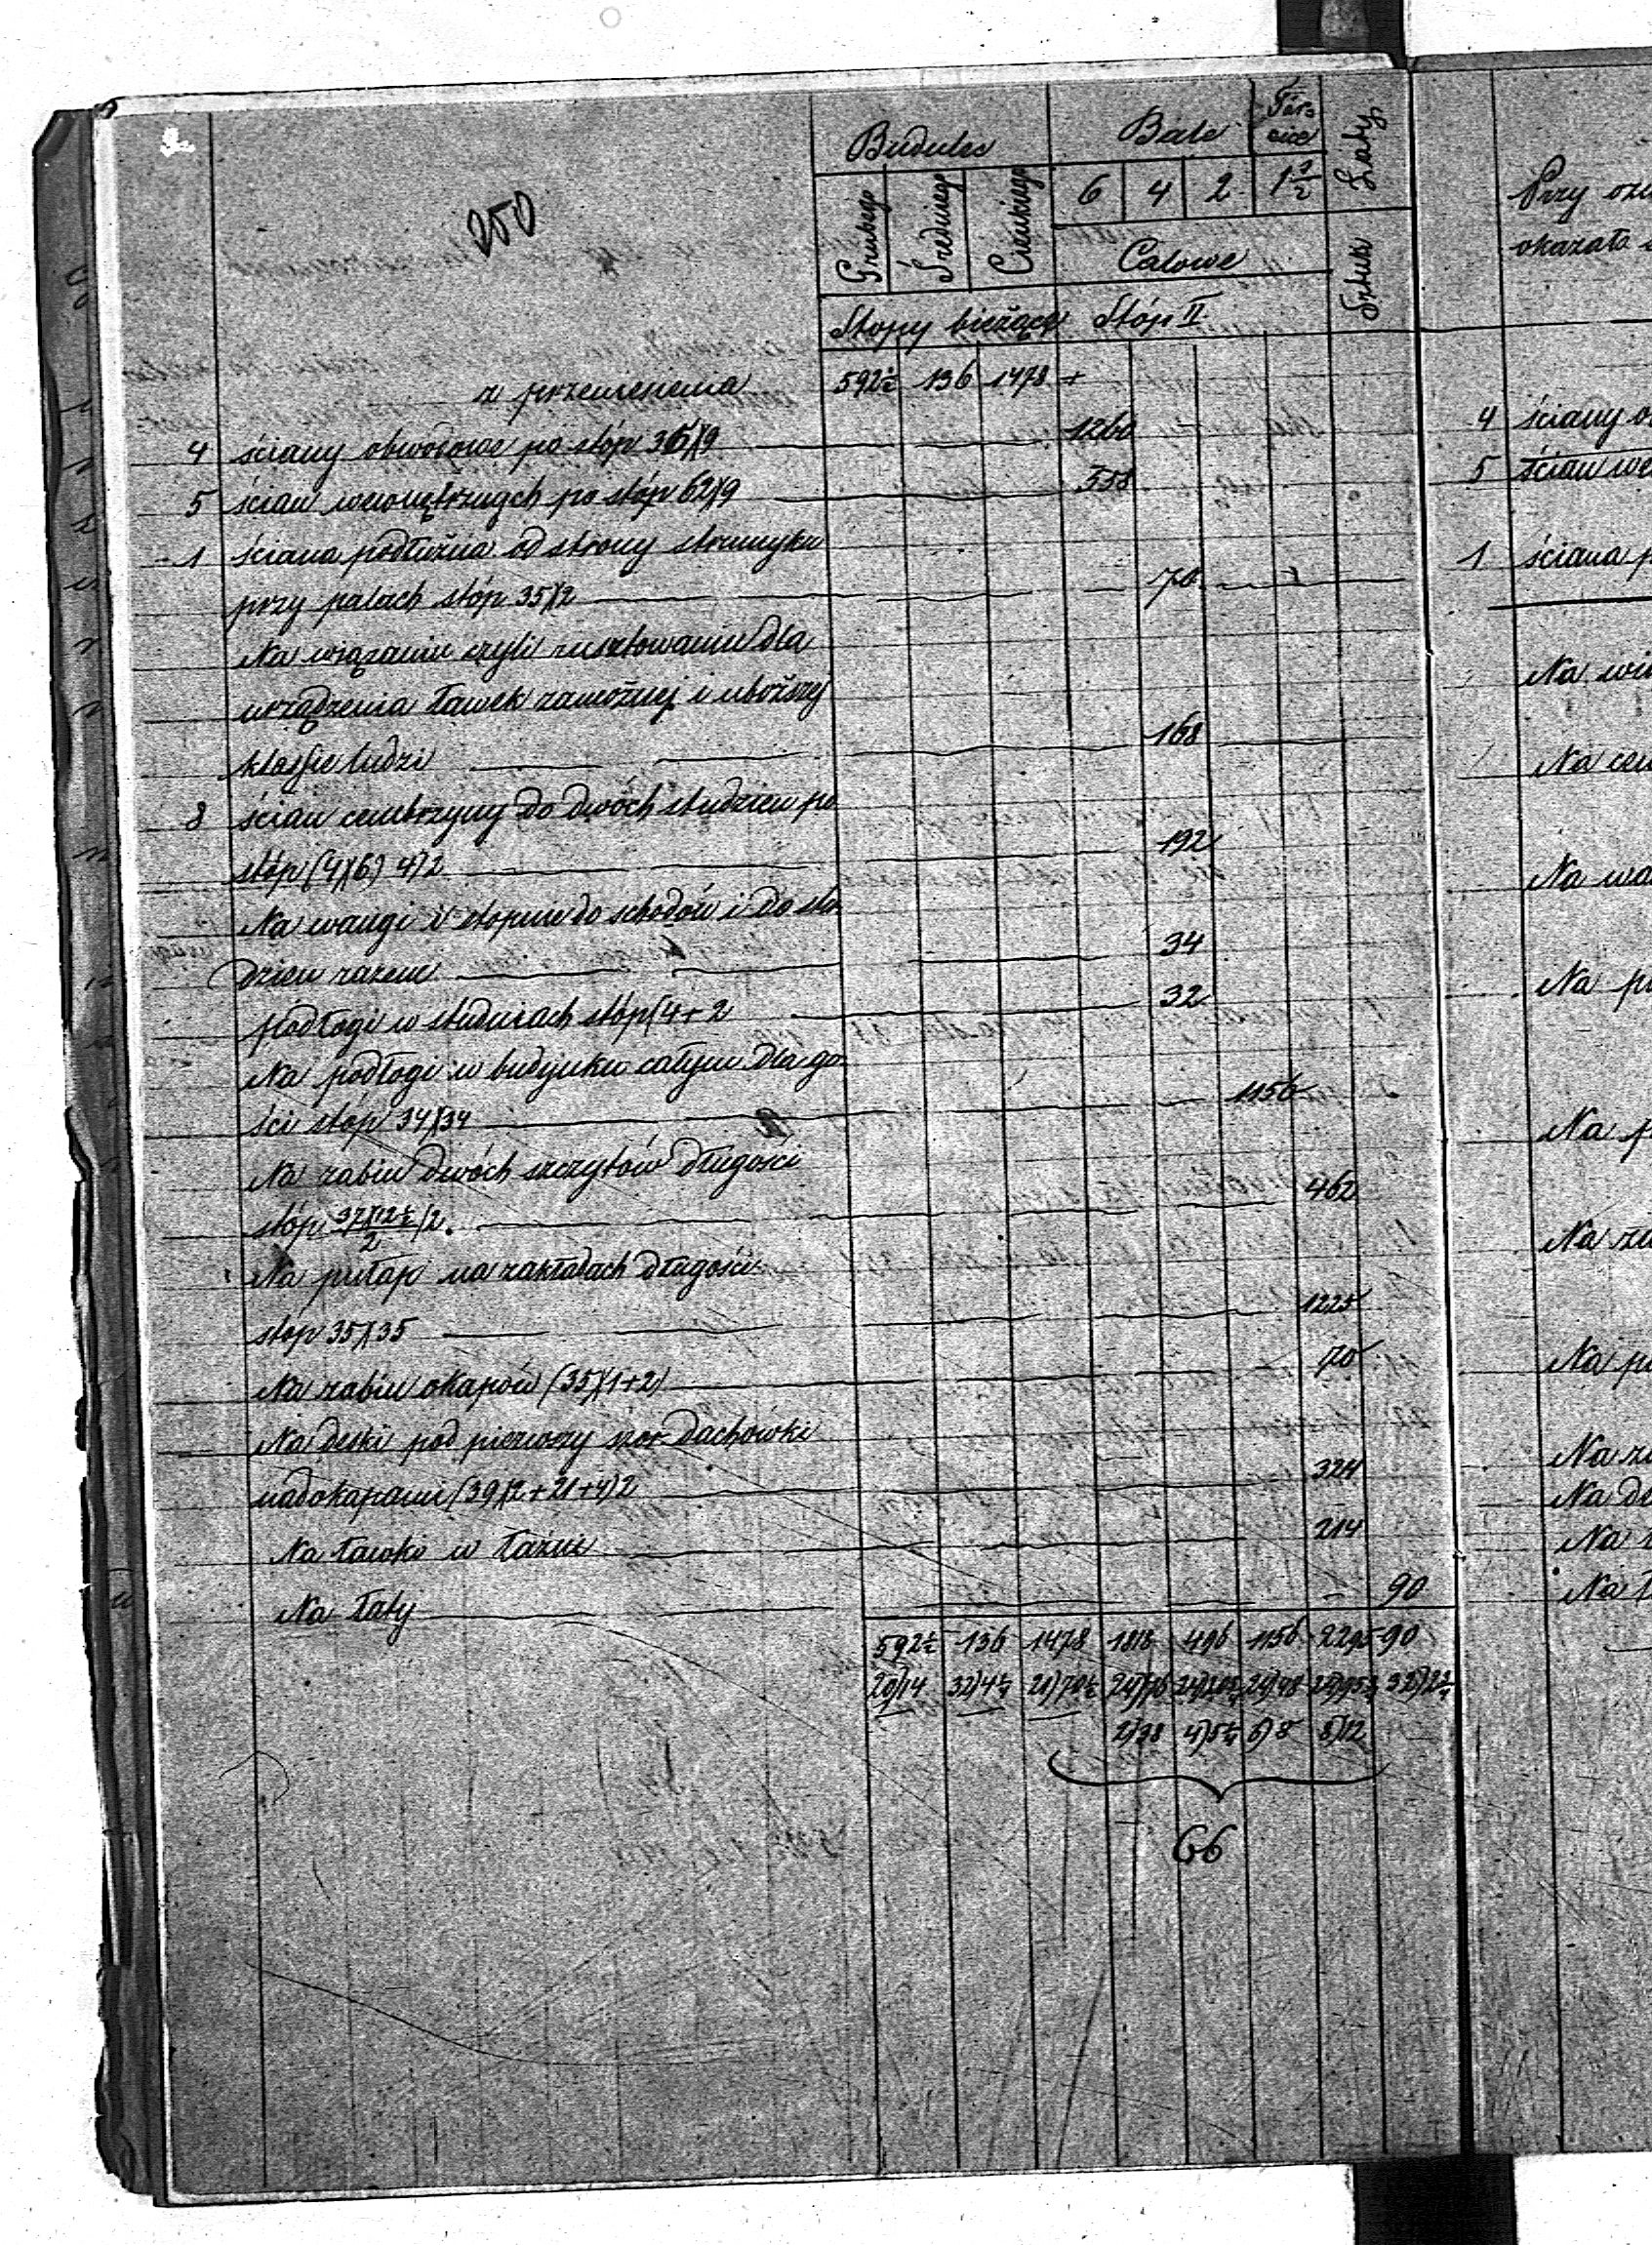 250
Budulec Bale Tarcice Łaty
Grubego Średniego Cieńkiego 6 4 2 1 1/2 Sztuk
Calowe
Stopy bieżące Stóp □
z przeniesienia 592½ 136 1478 +
4 ściany obwodowe po stóp 35)(9 1260
5 ścian wewnętrznych po stóp 62)(9 558
1 ściana podłużna od strony strumyka
przy palach stóp 35)(2 70
Na wiązanie czyli rusztowanie dla
urządzenia ławek zamożnej i uboższej
klassie ludzi 168
8 ścian cembrzyny do dwóch studzien po
stóp (4)(6) 4)2 192
Na wangi i stopnie do schodów i do stu
dzien razem 34
podłogi w studniach stóp (4+2 32
Na podłogi w budynku całym dla go-
ści stóp 34)(34 1156
Na zabiu dwóch szczytów długości
stóp 37)(12½/2)2. 462
Na pułap na zakładach długości
stóp 35)(35 1225
Na zabiu okapów (35)(1+2) 70
Na deski pod pierwszy szor dachówki
nadokapami (39)(2+21+4)2 324
Na ławki w łaźni 214
Na łaty 90
592½ 136 1478 1818 496 1156 2295 90
20)14 32)4¼ 21)70½ 24)76 24)48 32)2¾
2)38 4)5¼ 6)8 8)12
66
Przy
okazało
4 ściany
5 ścian
1 ściana
Na
Na
Na
Na
Na
Na
Na
Na
Na
Na
Na